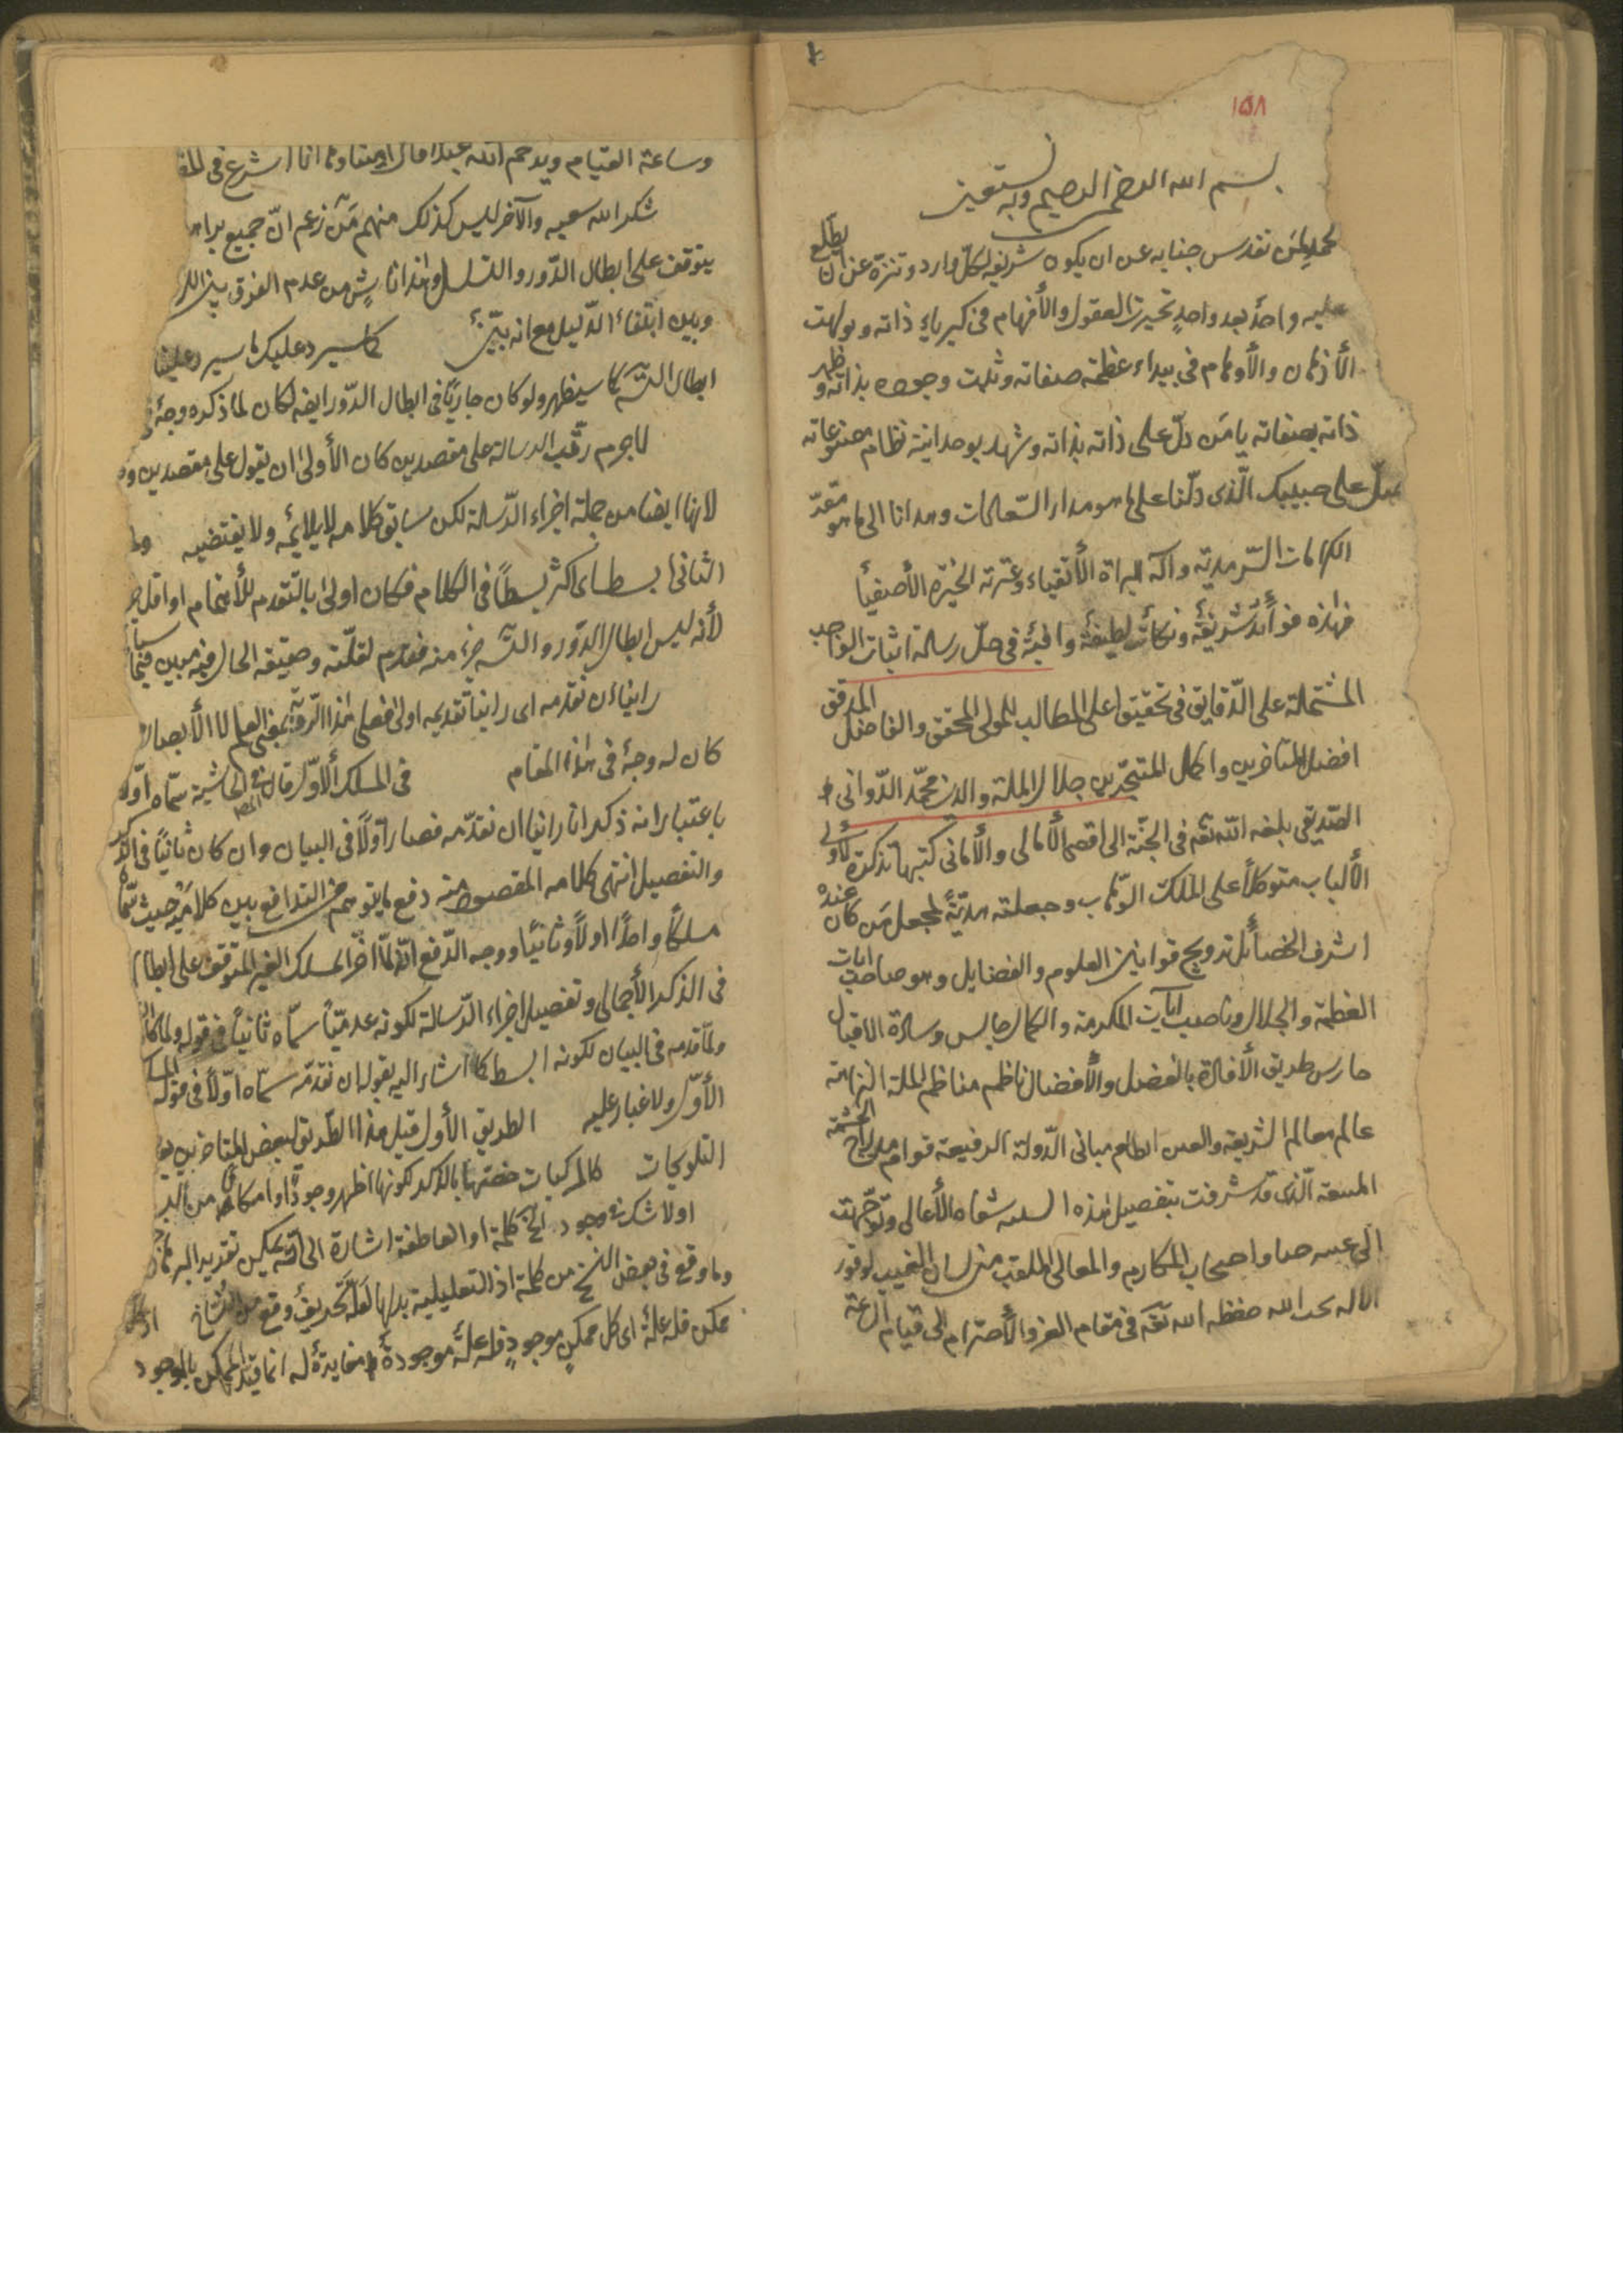 ١٥٨
بسم الله الرحمن الرحيم وبه نستعين
لحمد لمن تقدس جنابه عن ان يكون شريعة لكلّ وارد وتنزّه عن ان يطلع
عليه واحدٌ بعد واحدٍ تحيرت العقول والأفهام فى كبرياءِ ذاته وتولهت
الأذهان والأوهام فى بيداء عظمة صفاته وثبت وجوده بذاته وظهر
ذاته بصفاته يا مَن دلّ على ذاته بذاته وشهد بوحدانية نظام مصنوعاته
صلّ على حبيبك الّذى دلّنا على ما هو مدار السّعادات وهدانا الى ما هو مقرّ
الكرامات السّرمدية وآله البراة الأتقياء وعترته الخيرة الأصفيأ
فهذه فوائد شريفة ونكات لطيفة وافية فى حلّ رسالة اثبات الواجب
المشتملة على الدّقايق فى تحقيق اعلى المطالب للمولى المحقق والفاضل المدقق
افضل المتأخرين واكمل المتبحّرين جلال الملة والدين محمّد الدّوانى
الصّديقى بلغه الله تعه فى الجنّة الى اقصى الأمالى والأمانى كتبها تذكرة لأولى
الألباب متوكلاً على الملك الوّهاب وجعلته هديّةً لمجعل مَن كان عنده
اشرف الخصائل ترويج قوانين العلوم والفضايل وهو صاحب آيات
العظمة والجلال وناصب آيات المكرمة والكمال جالس وسادة الاقبال
حارس طريق الأفادة بالفضل والأفضال ناظم مناظم الملة
عالم معالم الشريعة مبانى الدّولة الرفيعة قوام
الّذى قد شرفت بتفصيل هذه شفاه الأعالى وتوجّهت
الى اصحاب المكارم والمعالى الملقب من لسان الغيب لوفور
حفظه الله تعه فى مقام العز والأحترام الى قيام الساعة
وساعة القيام ويرحم الله عبداً قال آمينا وها انا اشرع فى المق
شكر الله سعيه والآخر ليس كذلك منهم مَن زعم انّ جميع براه
يتوقف على ابطال الدّور والتسلسل وهذا ناشٍ من عدم الفرق بين
وبين ابتناء الدّليل مع انه بيّنٌ كما سيرد عليك ما سيرد علينا
ابطال التسه كما سيظهر ولو كان جاريًا فى ابطال الدّور ايضه لكان لما ذكره وجهٌ
لاجرم رتّب الرسالة على مقصدين كان الأولى ان يقول على مقصدين و
لانها ايضا من جملة اجزاء الرّسالة لكن سابق كلامه لا يلايمه ولا يقتضيه
الثانى ابسط اى اكثر بسطًا فى الكلام فكان اولى بالتقدم للأهتمام او اقل
لأنه ليس ابطال الدّور والتسه جزء منه فقدم لقلّته وحقيقة الحال فيه مبين فيما سيأ
راينا ان نقدمه اى راينا تقديمه اولى فعلى هذا الرّوية بمعنى العلم لا الأبصار
كان له وجهٌ فى هذا المقام فى المسلك الأوّل قال المصه فى الحاشية سمّاه اوّلا
باعتبار انه ذكر انا راينا ان نقدّمه فصار اوّلاً فى البيان وان كان ثانيًا فى الذكر
والتفصيل انتهى كلامه المقصود منه دفع ما يتوهم من التدافع بين كلاميه حيث سمّى
مسلكًا واحدًا اولاً وثانيًا ووجه الدّفع انّه لمّا اخّر المسلك الغير المتوقف على ابطال
فى الذكر الأجمالى وتفصيل اجزاء الرّسالة لكونه عدميّاً سمّاه ثانيًا فى قوله ولما كان
ولمّا قدمه فى البيان لكونه ابسط كما اشار اليه بقوله ان نقدّمه سمّاه اوّلاً فى قوله المسلك
الأوّل ولا غبار عليه الطريق الأول قيل هذا الطّريق لبعض المتأخرين
التلويحات كالمركبات خصّها بالذكر لكونها اظهر وجودًا وامكانًا من
اولا شك فى وجود الخ كلمة او العاطفة اشارة الى انّه يمكن تقدير البرهان
وما وقع فى بعض النسخ من كلمة اذ التعليلية بدلها لعلّه تحريفٌ وقع من النسّاخ اذ كل
ممكن فله علةٌ اى كل ممكنٍ موجودٍ فله علّةٌ موجودةٌ مغايرةٌ له انما قيّد الممكن بالموجود